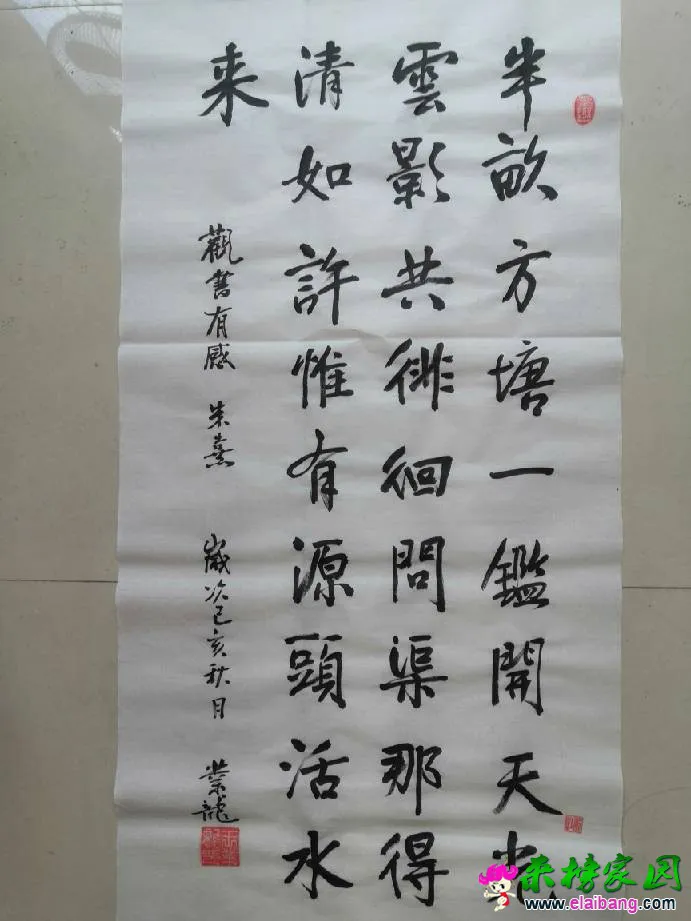 半畝方塘一鑑開天光
雲影共徘徊問渠那得
清如許惟有源頭活水
来
觀書有感 朱熹 歲次己亥秋月 業龍
来榜家园
www.elaibang.com